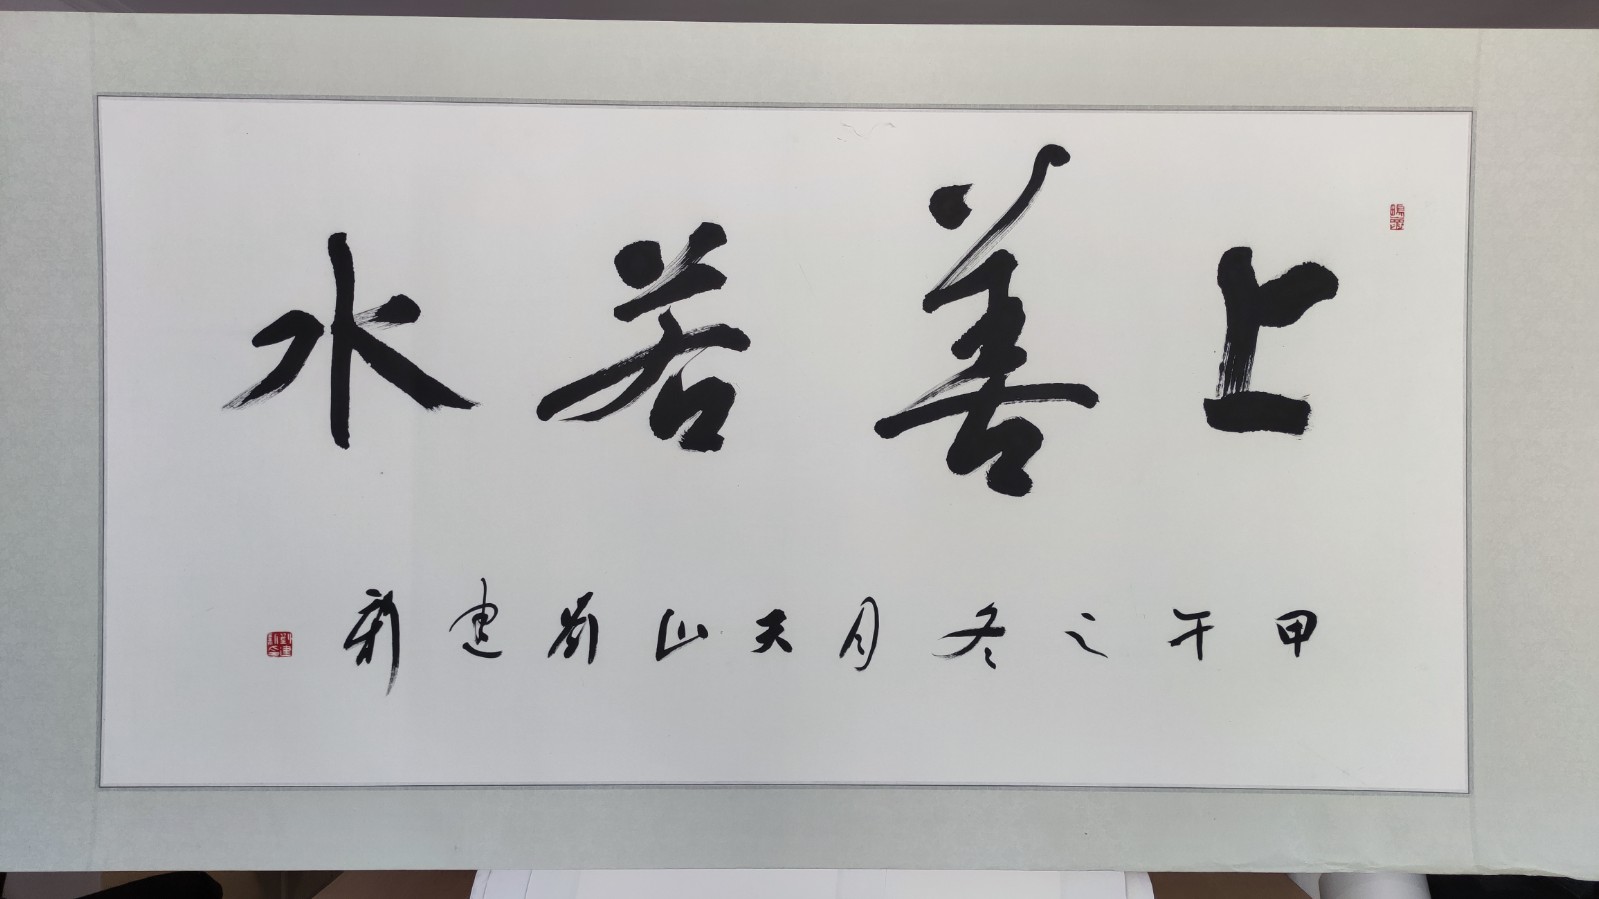 上善若水
甲午之冬月天山刘建新